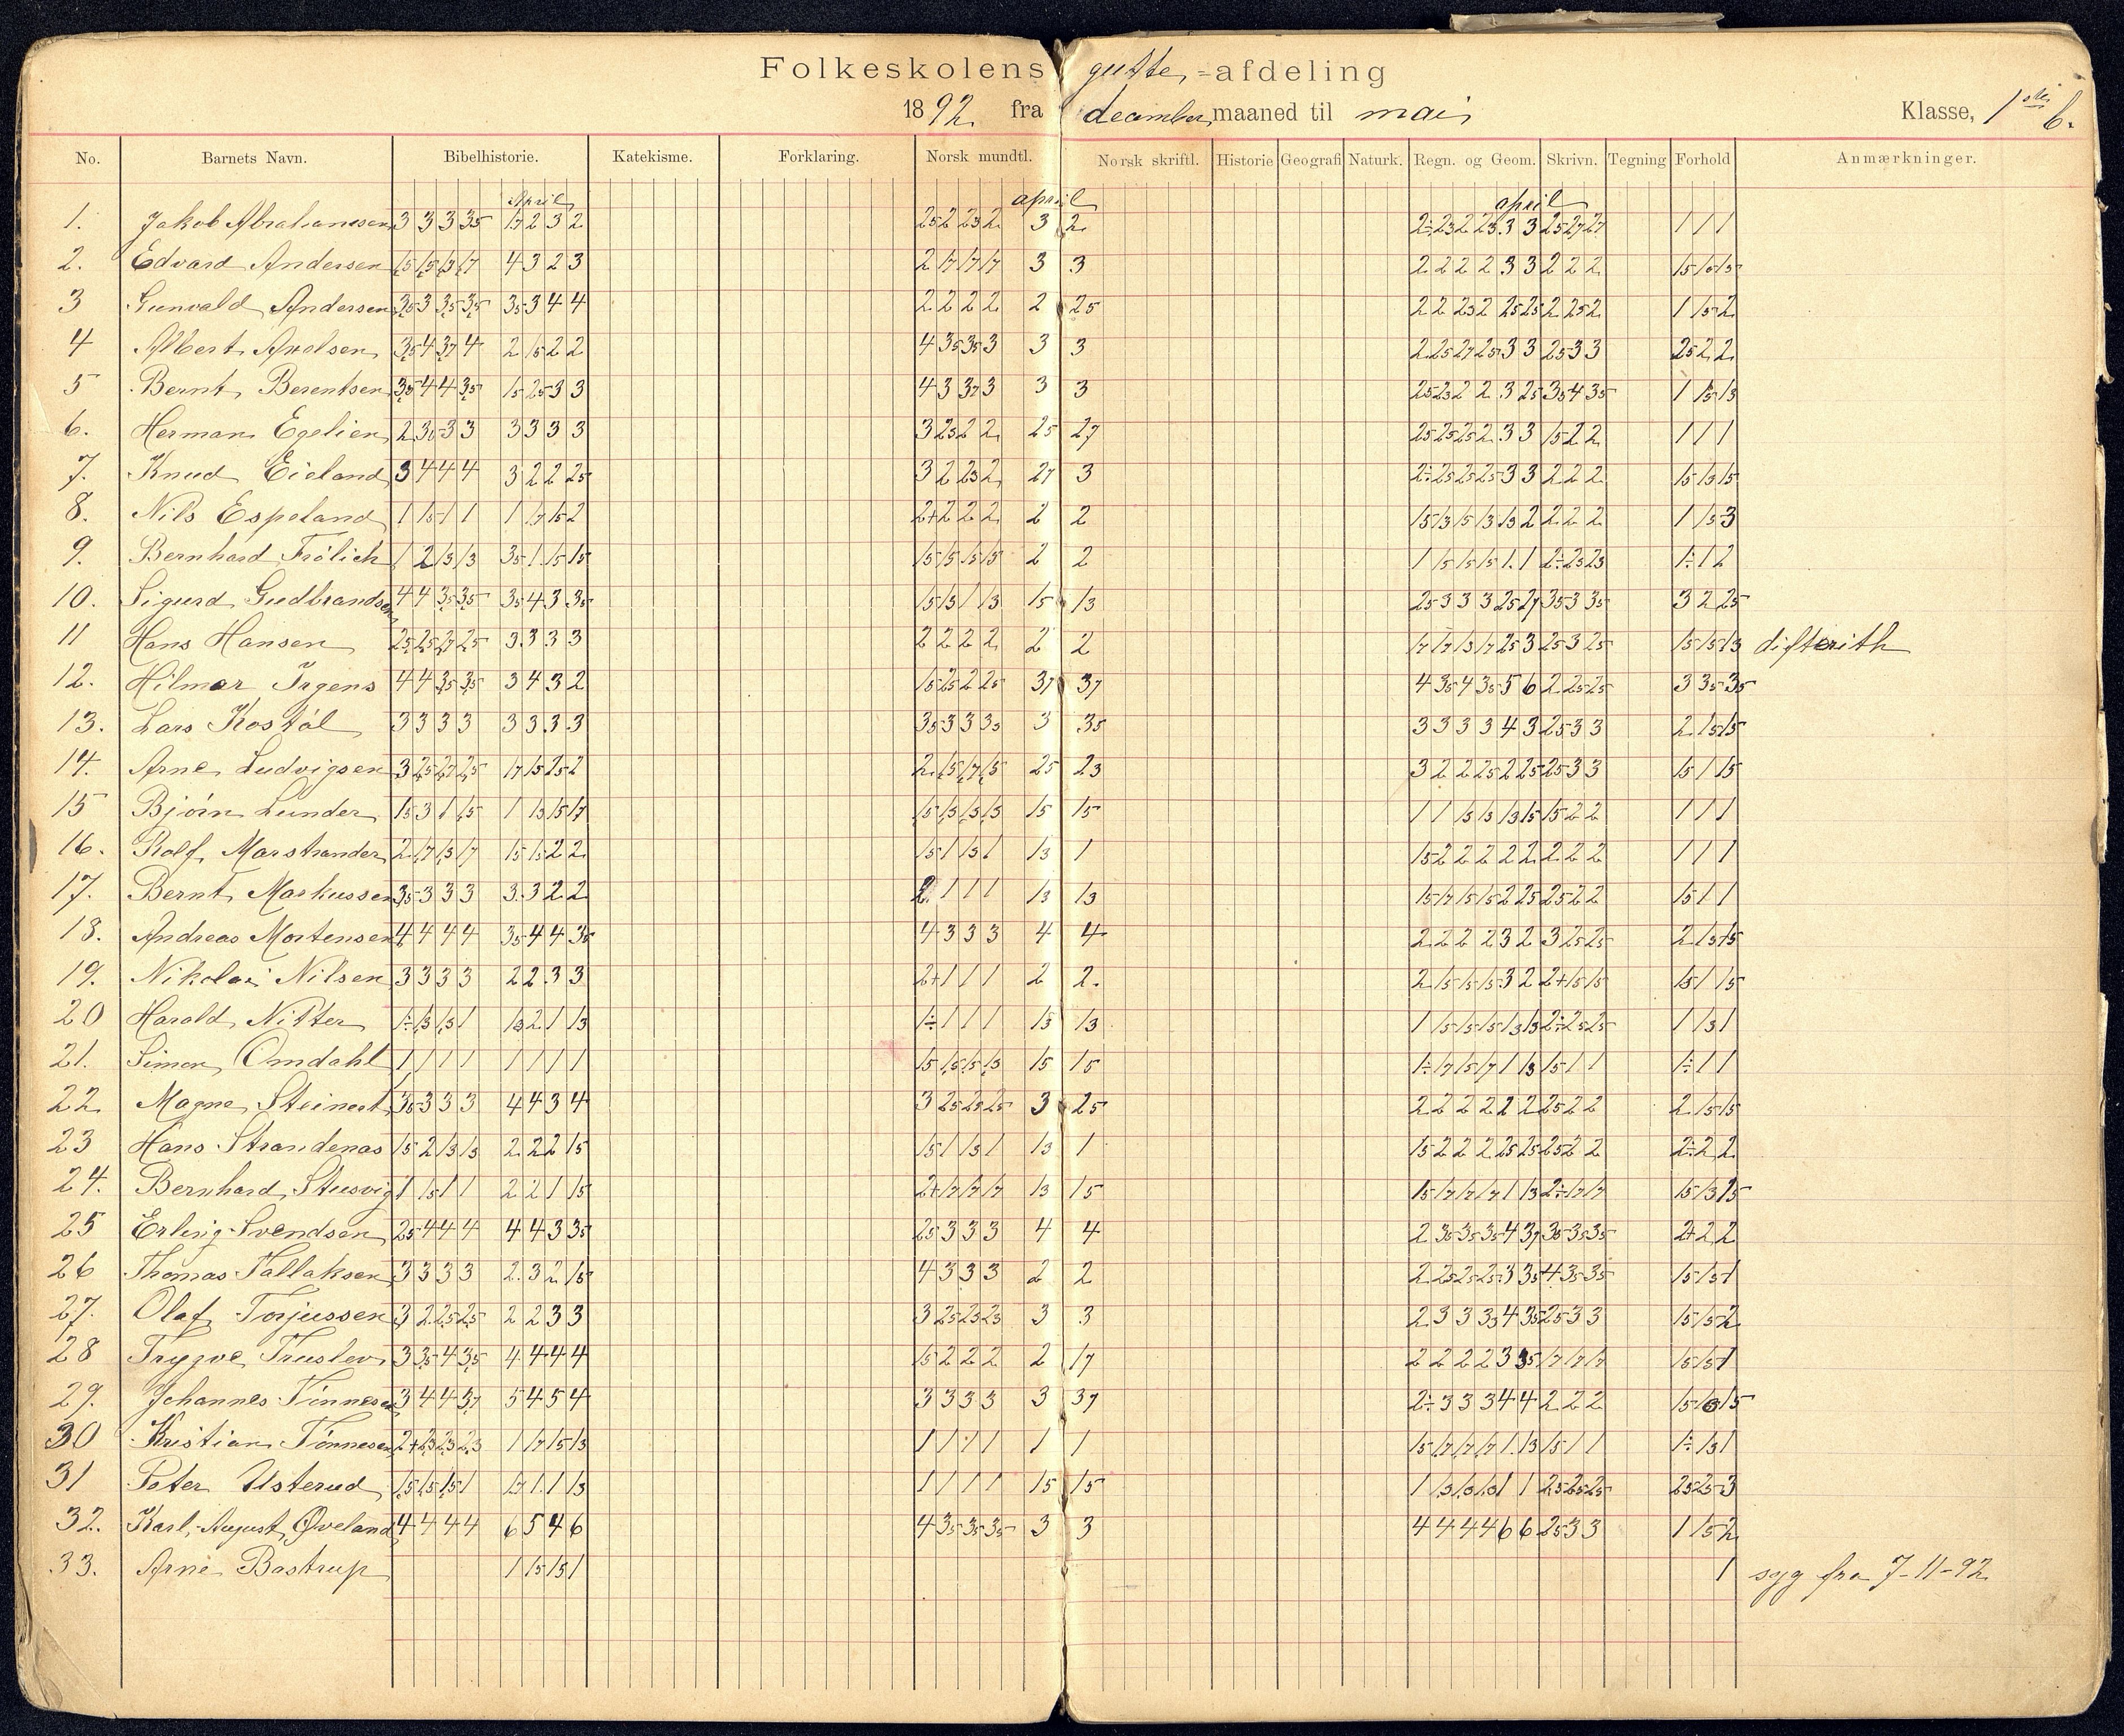 Folkeskolens gutte-afdeling
1892 fra december maaned til mai Klasse, 1ste b.
No. Barnets Navn. Bibelhistorie. Katekisme. Forklaring. Norsk mundtl. Norsk skriftl. Historie Geografi Naturk. Regn. og Geom. Skrivn. Tegning Forhold Anmærkninger.
April april april
1. Jakob Abrahamsen 3 3 3 35 17 2 3 2 25 2 23 2 3 2 1 1 1
2. Edvard Andersen 15 15 13 17 4 3 2 3 2 17 17 17 3 3 2 2 2 2 3 3 2 2 2
3 Gunvald Andersen 35 3 35 35 35 3 4 4 2 2 2 2 2 25 2 2 23 2 25 25 2 25 2 1 15 2
4 Albert Axelsen 35 4 37 4 2 15 2 2 4 35 35 3 3 3 2 25 27 25 3 3 25 3 3 25 2 2
5 Bernt Berentsen 35 4 4 35 15 25 3 3 4 3 37 3 3 3 25 23 2 2 3 25 35 4 35 1 15 13
6. Herman Egelien 2 35 3 3 3 3 3 3 3 23 2 2 25 27 25 25 25 2 3 3 15 2 2 1 1 1
7. Knud Eieland 3 4 4 4 3 2 2 25 3 2 23 2 27 3 2÷ 25 25 25 3 3 2 2 2 15 15 15
8. Nils Espeland 1 15 1 1 1 17 15 2 2+ 2 2 2 2 2 15 13 15 13 13 2 2 2 2 1 15 3
9. Bernhard Frölich 1 2 13 13 35 1 15 15 15 15 15 15 2 2 1 15 15 15 1 1 2÷ 25 23 1÷ 1 2
10. Sigurd Gudbrandsen 4 4 35 35 35 4 3 35 15 13 1 13 15 13 25 3 3 3 25 27 35 3 35 3 2 25
11 Hans Hansen 25 25 27 25 3 3 3 3 2 2 2 2 2 2 17 17 13 17 25 3 25 3 25 15 15 13 difterith
12. Hilmar Irgens 4 4 35 35 3 4 3 2 15 25 2 25 37 37 4 35 4 35 5 6 2 25 25 3 35 35
13. Lars Kostøl 3 3 3 3 3 3 3 3 35 3 3 35 3 35 3 3 3 3 4 3 25 3 3 2 15 15
14. Arne Ludvigsen 3 25 27 25 17 15 25 2 2 15 17 15 25 23 3 2 2 25 2 25 25 3 3 15 1 15
15 Bjørn Lunder 15 3 1 15 1 13 15 17 15 13 13 13 15 15 1 1 15 13 13 15 15 2 2 1 1 1
16. Rolf Marstrander 2 17 13 17 15 15 2 2 15 1 13 1 13 1 15 2 2 2 2 2 2 2 2 1 1 1
17. Bernt Markussen 35 3 3 3 3 3 2 2 2 1 1 1 13 13 15 17 15 15 2 25 25 2 2 15 1 1
18. Andreas Mortensen 4 4 4 4 35 4 4 35 4 3 3 3 4 4 2 2 2 2 3 2 3 25 25 2 15 15
19. Nikolai Nilsen 3 3 3 3 2 2 3 3 2+ 1 1 1 2 2. 2 15 15 15 3 2 2+ 15 15 15 1 15
20 Harald Nitter 1÷ 13 13 1 13 2 1 13 1÷ 1 1 1 13 13 1 15 15 15 13 13 2÷ 25 25 1 13 1
21. Simon Omdahl 1 1 1 1 1 1 1 1 15 15 15 13 15 15 1÷ 17 15 17 1 13 15 1 1 1÷ 1 1
22 Magne Steinert 35 3 3 3 4 4 3 4 3 25 25 25 3 25 2 2 2 2 2 2 25 2 2 2 15 15
23 Hans Strandenas 15 2 13 13 2 2 2 15 15 1 13 1 13 1 15 2 2 2 25 25 25 2 2 2÷ 2 2
24. Bernhard Stusvig 1 15 1 1 2 2 1 15 2+ 17 17 17 13 15 15 17 17 17 1 13 2÷ 17 17 15 13 15
25 Erling Svendsen 25 4 4 4 4 4 3 35 25 3 3 3 4 4 2 35 35 35 4 37 35 35 35 2+ 2 2
26 Thomas Tallaksen 3 3 3 3 2 3 2 15 4 3 3 3 2 2 2 25 25 25 3 35 4 35 35 15 15 1
27. Olaf Torjussen 3 2 25 25 2 2 3 3 3 25 23 23 3 3 2 3 3 33 4 35 25 3 3 15 15 2
28 Trygve Truslev 3 35 4 35 4 4 4 4 15 2 2 2 2 17 2 2 2 2 3 35 17 17 17 15 15 1
29. Johannes Tønnesen 3 4 4 37 5 4 5 4 3 3 3 3 3 37 2÷ 3 3 3 4 4 2 2 2
30 Kristian Tønnesen 2+ 23 23 23 1 17 15 13 1 1 1 1 1 1 15 17 17 17 1 13 15 1 1 1÷ 13 1
31 Peter Usterud 15 15 15 1 17 1 1 13 1 1 1 1 15 15 25 25 25 25 25 3
32. Karl August Øveland 4 4 4 4 6 5 4 6 4 35 35 35 3 3 4 4 4 4 6 6 25 3 3 1 15 2
33. Arne Bastrup 1 15 15 1 1 syg fra 7-11-92